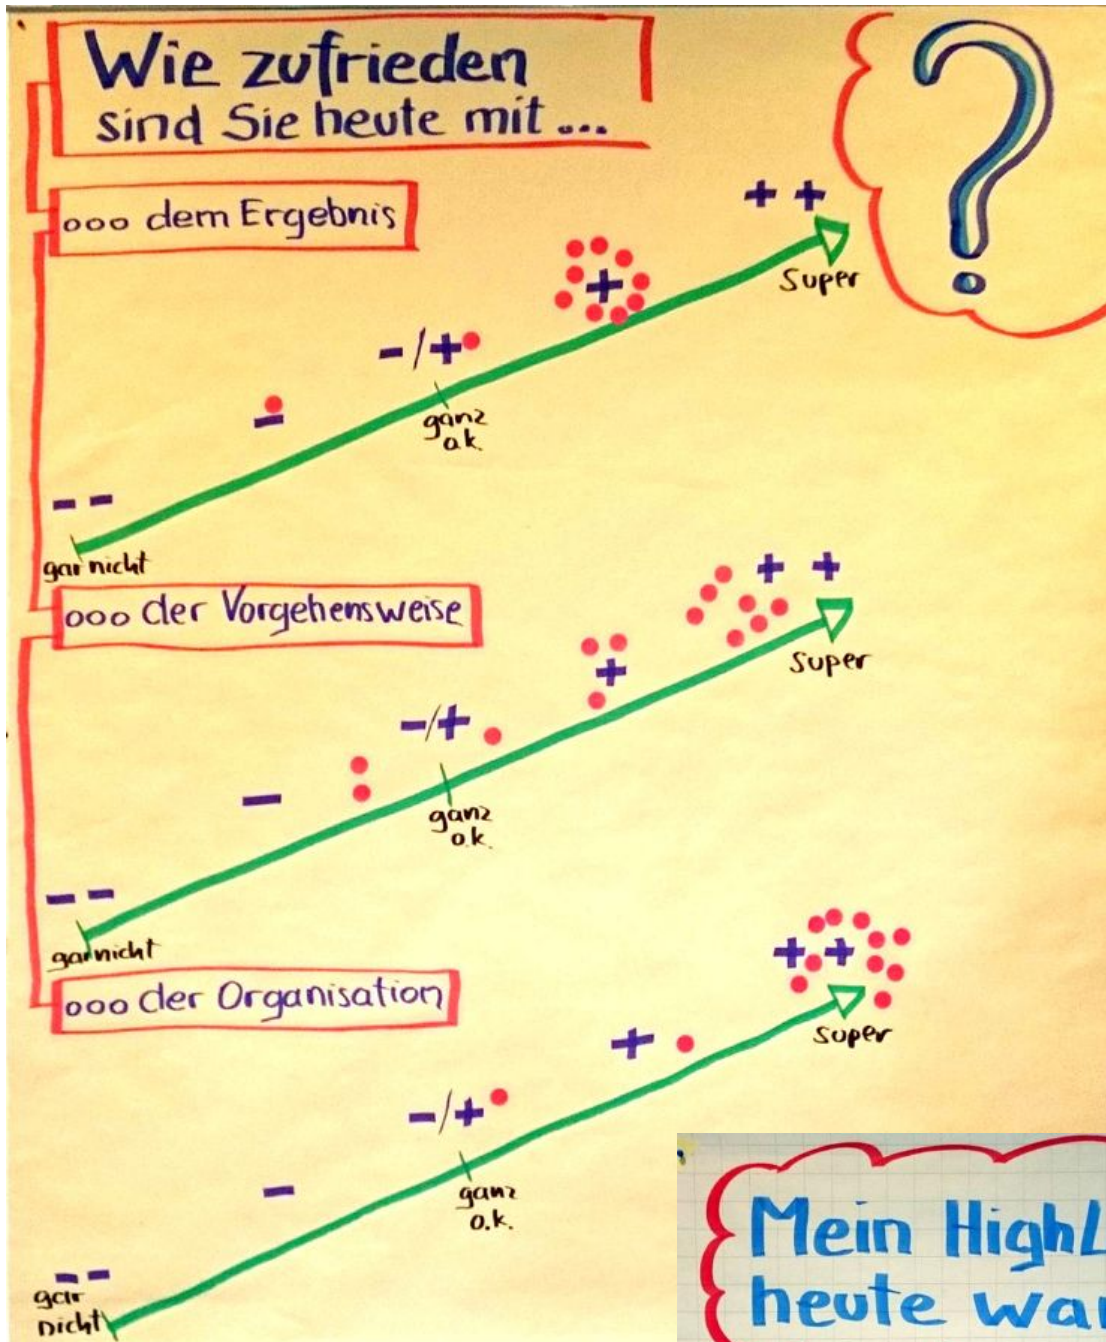 Wie zufrieden
sind Sie heute mit ...
ooo dem Ergebnis
++
Super
+
-/+
ganz
o.k.
-
--
gar nicht
ooo der Vorgehensweise
++
Super
+
-/+
ganz
o.k.
-
--
gar nicht
ooo der Organisation
++
Super
+
-/+
ganz
o.k.
-
--
gar
nicht
?
Mein HighL
heute war